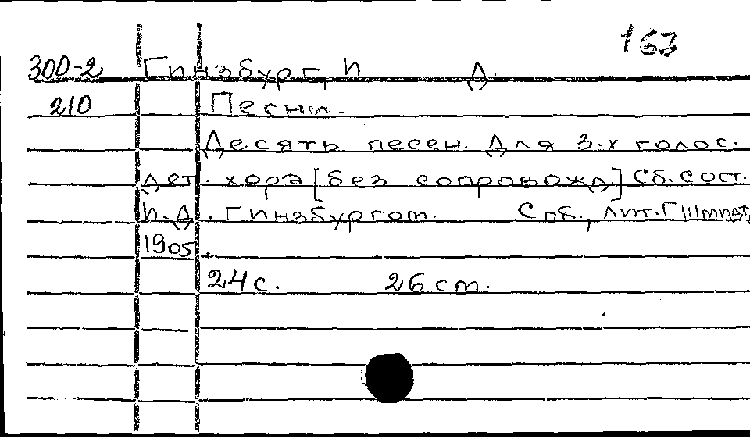 163
300-2 Гинзбург, И Д.
210 Песни.
Десять песен. Для 3-х голос.
дет. хора [без сопровожд] Сб. сост.
И.Д. Гинзбургом. Спб., лит. Г Шмидт,
1905.
24 с. 26 cm.